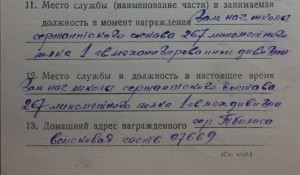 11. Место службы (наименование части) и занимаемая
должность в момент награждения Зам нач школы
сержантского состава 267 минометного
полка 1 гв механизированной дивизии
12. Место службы и должность в настоящее время
Зам нач школы сержантского состава
267 минометного полка 1 гв мех дивизии
13. Домашний адрес награжденного гор Тбилиси
Войсковая часть 07669
(См. на об.)